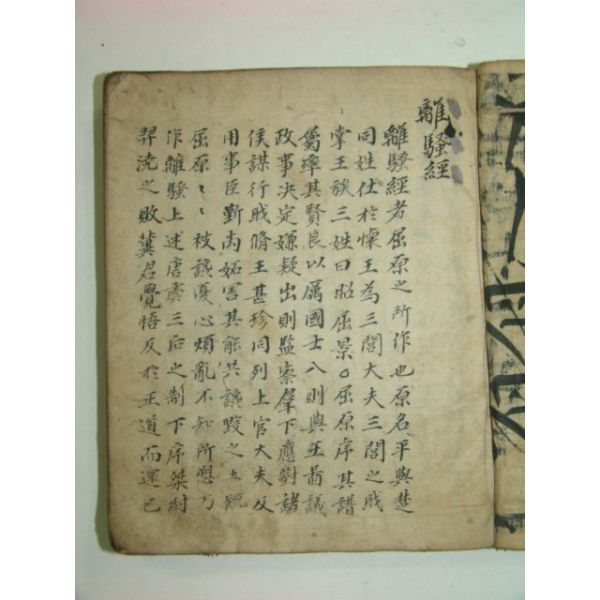 離騷經
離騷經者屈原之所作也原名平與楚
同姓仕於懷王為三閭大夫三閭之职
掌王族三姓曰昭屈景○屈原序其譜
屬率其賢良以厲國士入則與王啚議
政事决定嫌疑出則監察羣下應對諸
侯謀行职脩王甚珍同列上官大夫及
用事臣靳尚妬害其能共譖毀之王疏
屈原々々被讒憂心煩亂不知所愬乃
作離騷上述唐虞三后之制下序桀紂
羿浇之敗冀君覺悟反於王道而還己